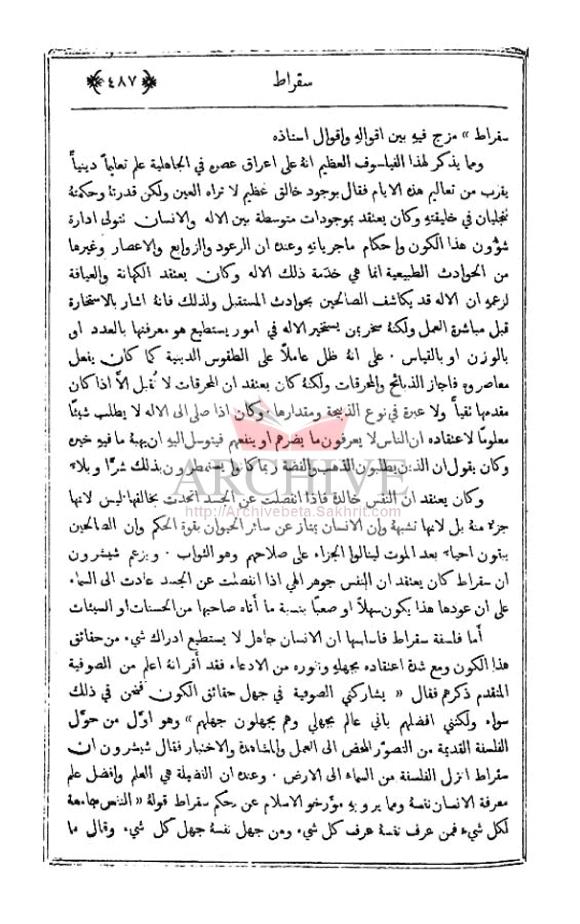 سقراط
﴿٤٨٧﴾
سقراط » مزج فيهِ بين اقوالهِ واقوال استاذه
ومما يذكر لهذا الفيلسوف العظيم انهُ على اعراق عصره في الجاهلية علم تعليماً دينياً
يقرب من تعاليم هذه الايام فقال بوجود خالق عظيم لا تراه العين ولكن قدرتهُ وحكمتهُ
تتجليان في خليقتهِ وكان يعتقد بموجودات متوسطة بين الاله والانسان تتولى ادارة
شؤون هذا الكون واحكام ماجرياتهِ وعنده ان الرعود والزوابع والاعصار وغيرها
من الحوادث الطبيعية انما هي خدمة ذلك الاله وكان يعتقد الكهانة والعيافة
لزعمهِ ان الاله قد يكاشف الصالحين بحوادث المستقبل ولذلك فانهُ اشار بالاستخارة
قبل مباشرة العمل ولكنهُ سخر بمن يستخير الاله في امور يستطيع هو معرفتها بالعدد او
بالوزن او بالقياس . على انهُ ظل عاملاً على الطقوس الدينية كما كان يفعل
معاصروه فاجاز الذبائح والمحرقات ولكنهُ كان يعتقد ان المحرقات لا تُقبل الاَّ اذا كان
مقدمها نقياً ولا عبرة في نوع الذبيحة ومقدارها . وكان اذا صلى الى الاله لا يطلب شيئًا
معلومًا لاعتقاده ان الناس لا يعرفون ما يضرهم او ينفعهم فيتوسل اليهِ ان يهبهُ ما فيهِ خيره
وكان يقول ان الذين يطلبون الذهب والفضة ربما كانوا يستمطرون بذلك شرًّا وبلاء
وكان يعتقد ان النفس خالدة فاذا انفصلت عن الجسد اتحدت بخالقها ليس لانها
جزء منهُ بل لانها تشبههُ وان الانسان يمتاز عن سائر الحيوان بقوة الحكم وان الصالحين
يبقون احياء بعد الموت لينالوا الجزاء على صلاحهم وهو الثواب . ويزعم شيشرون
ان سقراط كان يعتقد ان النفس جوهر الهي اذا انفصلت عن الجسد عادت الى السماء
على ان عودها هذا يكون سهلاً او صعبًا بنسبة ما أتاه صاحبها من الحسنات او السيئات
أما فلسفة سقراط فاساسها ان الانسان جاهل لا يستطيع ادراك شيء من حقائق
هذا الكون ومع شدة اعتقاده بجهلهِ ونفوره من الادعاء فقد أقر انهُ اعلم من الصوفية
المتقدم ذكرهم فقال « يشاركني الصوفية في جهل حقائق الكون فنحن في ذلك
سواء ولكنني افضلهم باني عالم بجهلي وهم يجهلون جهلهم » وهو اوَّل من حوَّل
الفلسفة القديمة من التصوُّر المحض الى العمل والمشاهدة والاختبار فقال شيشرون ان
سقراط انزل الفلسفة من السماء الى الارض . وعنده ان الفضيلة هي العلم وافضل علم
معرفة الانسان نفسهُ ومما يرويهِ مؤرخو الاسلام عن حكم سقراط قولهُ « النفس جامعة
لكل شيء فمن عرف نفسهُ عرف كل شيء ومن جهل نفسهُ جهل كل شيء وقال ما
ARCHIVE
http://Archivebeta.Sakhrit.com